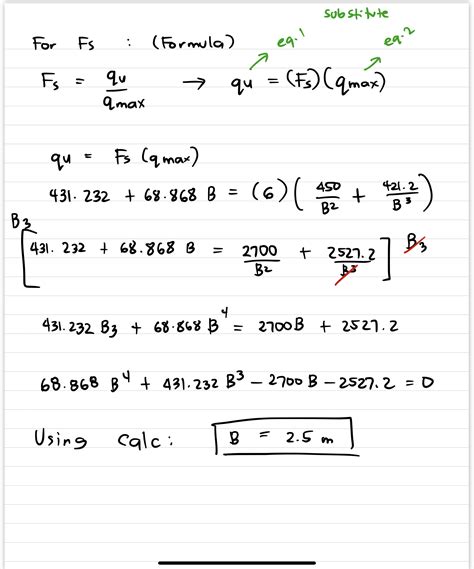 substitute
For Fs : (Formula) eq.1 eq.2
Fs = qu/qmax → qu = (Fs)(qmax)
qu = Fs (qmax)
431.232 + 68.868 B = (6) (450/B2 + 421.2/B3)
B3 [431.232 + 68.868 B = 2700/B2 + 2527.2/B3] B3
431.232 B3 + 68.868 B^4 = 2700B + 2527.2
68.868 B^4 + 431.232 B^3 - 2700 B - 2527.2 = 0
Using calc: B = 2.5 m